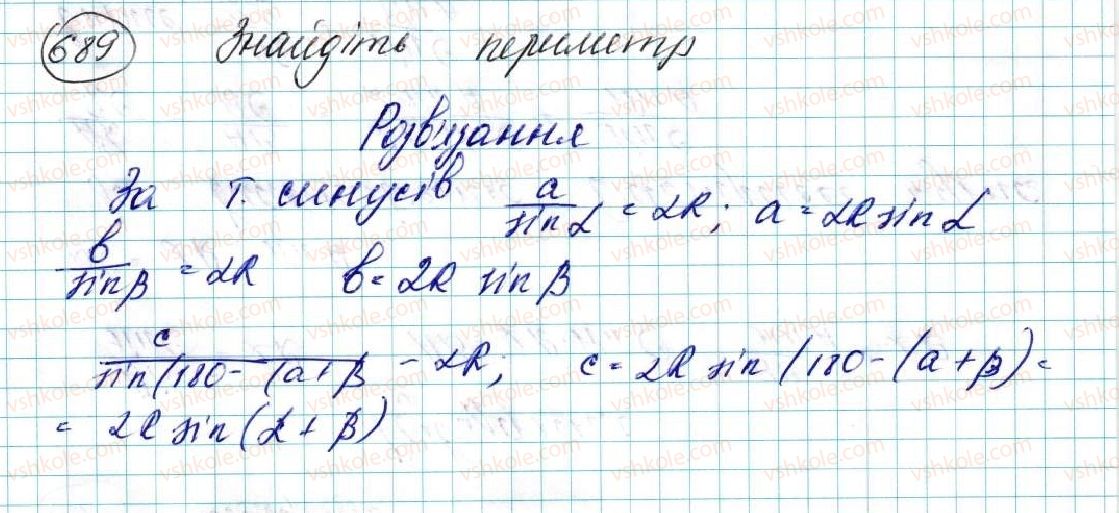 689 Знайдіть периметр
Розв'язання
За т. синусів a/sin α = 2R; a = 2R sin α
b/sin β = 2R b = 2R sin β
c/sin(180 - (a + β = 2R; c = 2R sin(180 - (a + β) =
= 2R sin(α + β)